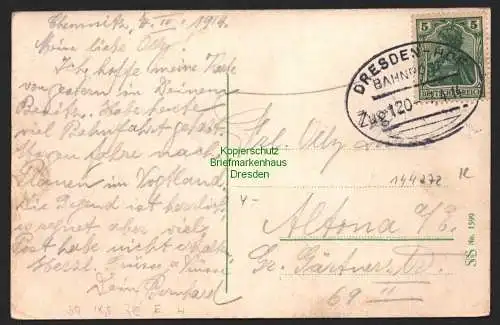 Chemnitz, 2. IV. 1914.
Meine liebe Olly!
Ich hoffe meine Karte
von gestern in Deinem
Besitz. Habe heute
viel Bahnfahrt gehabt.
Morgen fahre nach
Plauen im Vogtland.
Die Gegend ist herrlich
aber viel
Post habe nicht erhalten
Herzl. Grüsse & Küsse
Dein Bernhard
5
DEUTSCHES REICH
DRESDEN-
BAHNPOST
Zug 120
Kopierschutz
Briefmarkenhaus
Dresden
Frl. Olly
144272
Altona a/E.
Gr. Gärtnerstr.
69 II
SS No. 1599